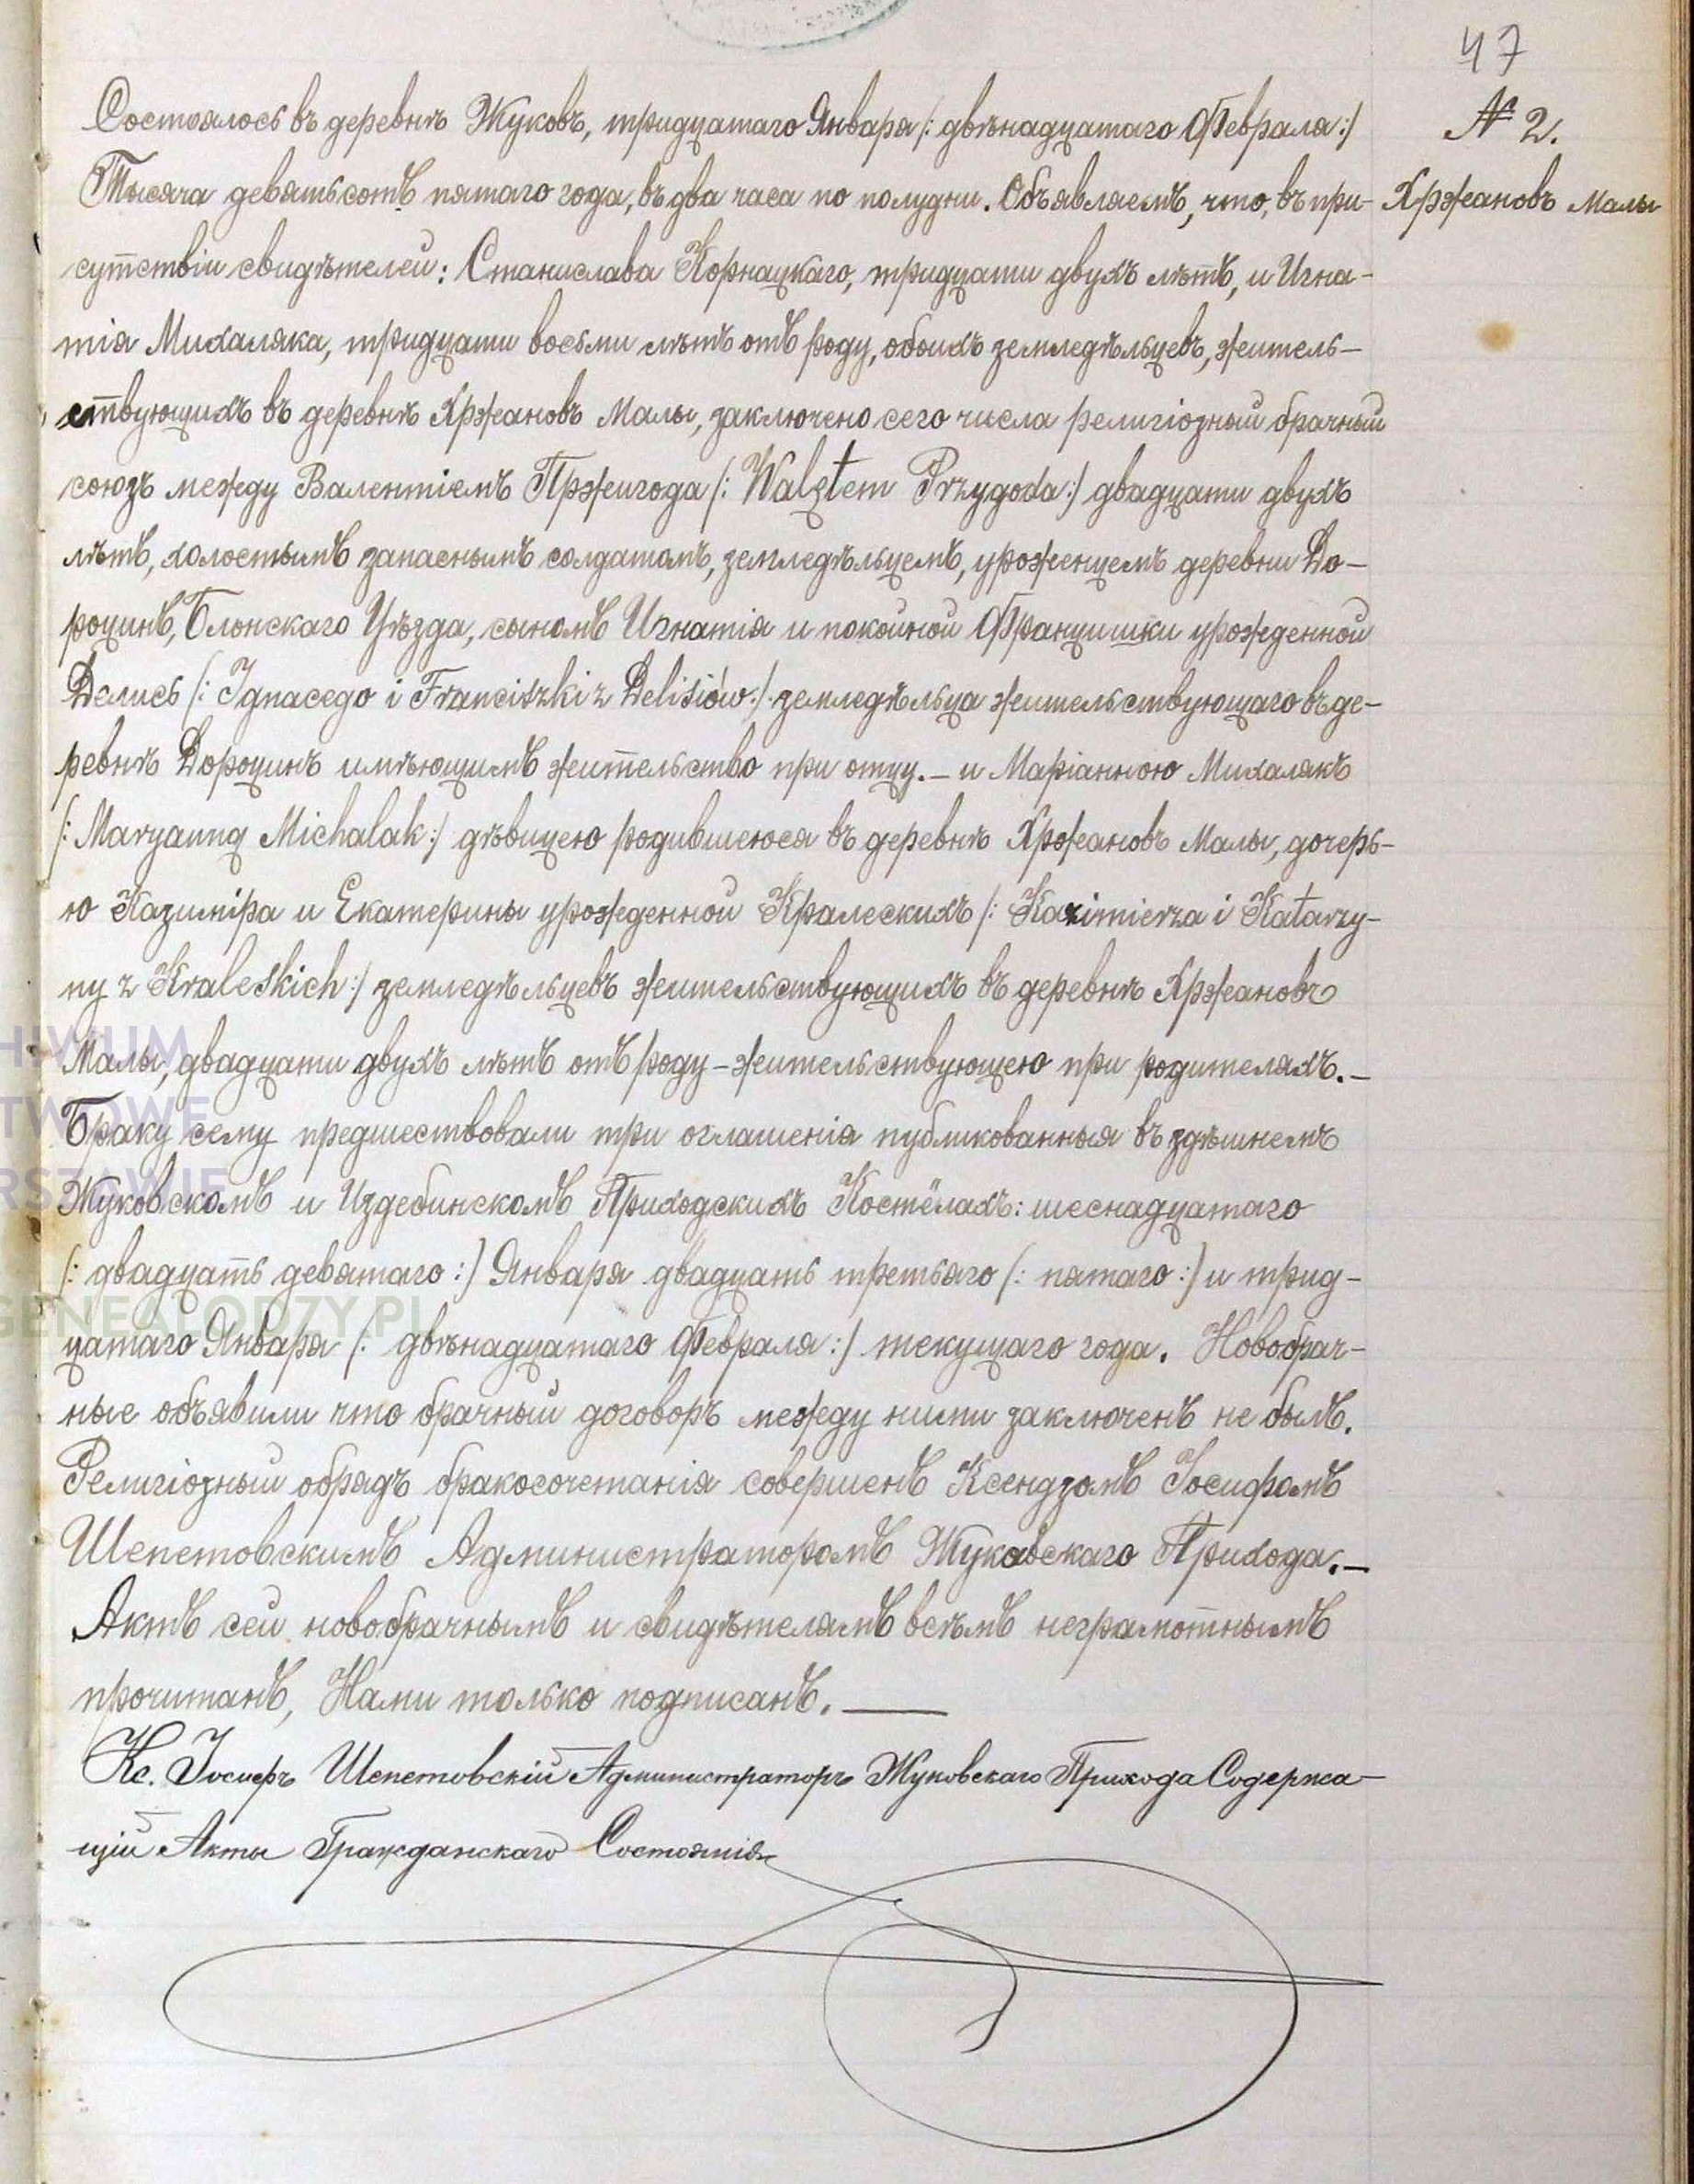 47
№ 2.
Хржановъ Малы
Состоялось въ деревнѣ Жуковъ, тридцатаго Января /: двѣнадцатаго Февраля :/
Тысяча девятьсотъ пятаго года, въ два часа по полудни. Объявляемъ, что, въ при-
сутствіи свидѣтелей: Станислава Корнацкаго, тридцати двухъ лѣтъ, и Игна-
тія Михаляка, тридцати восьми лѣтъ отъ роду, обоихъ земледѣльцевъ, житель-
ствующихъ въ деревнѣ Хржановъ Малы, заключено сего числа религіозный брачный
союзъ между Валентіемъ Пржигода /: Walętem Przygoda :/ двадцати двухъ
лѣтъ, холостымъ запаснымъ солдатомъ, земледѣльцемъ, уроженцемъ деревни До-
роцинъ, Блонскаго Уѣзда, сыномъ Игнатія и покойной Францишки урожденной
Делись /: Ignacego i Franciszki z Delisiów :/ земледѣльца жительствующаго въ де-
ревнѣ Дороцинъ имѣющимъ жительство при отцу. — и Маріанною Михалякъ
/: Maryanną Michalak :/ дѣвицею родившеюся въ деревнѣ Хржановъ Малы, дочерь-
ю Казиміра и Екатерины урожденной Кралескихъ /: Kazimierza i Katarzy-
ny z Kraleskich :/ земледѣльцевъ жительствующихъ въ деревнѣ Хржановъ
Малы, двадцати двухъ лѣтъ отъ роду – жительствующею при родителяхъ. —
Браку сему предшествовали три оглашенія публикованныя въ здѣшнемъ
Жуковскомъ и Издебинскомъ Приходскихъ Костёлахъ: шеснадцатаго
/: двадцать девятаго :/ Января двадцать третьяго /: пятаго :/ и трид-
цатаго Января /: двѣнадцатаго Февраля :/ текущаго года. Новобрач-
ные объявили что брачный договоръ между ними заключенъ не былъ.
Религіозный обрядъ бракосочетанія совершенъ Ксендзомъ Іосифомъ
Шепетовскимъ Администраторомъ Жуковскаго Прихода. —
Актъ сей новобрачнымъ и свидѣтелямъ всѣмъ неграмотнымъ
прочитанъ, Нами только подписанъ. —
Кс. Іосифъ Шепетовскій Администраторъ Жуковскаго Прихода Содержа-
щій Акты Гражданскаго Состоянія
HIWUM
TWOWE
RSZAWIE
GENEALODZY.PL